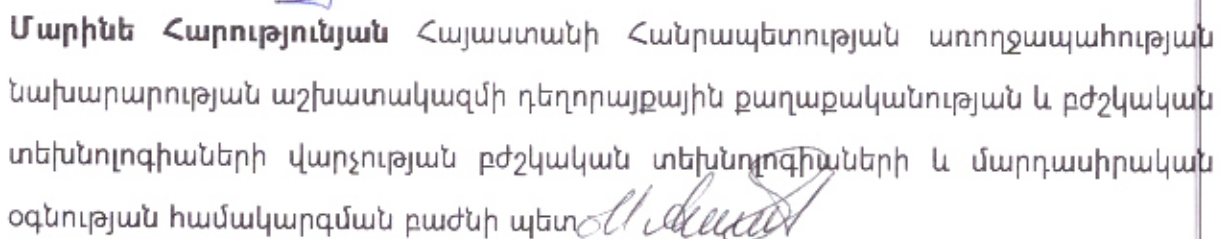 Մարինե Հարությունյան Հայաստանի Հանրապետության առողջապահության
նախարարության աշխատակազմի դեղորայքային քաղաքականության և բժշկական
տեխնոլոգիաների վարչության բժշկական տեխնոլոգիաների և մարդասիրական
օգնության համակարգման բաժնի պետ